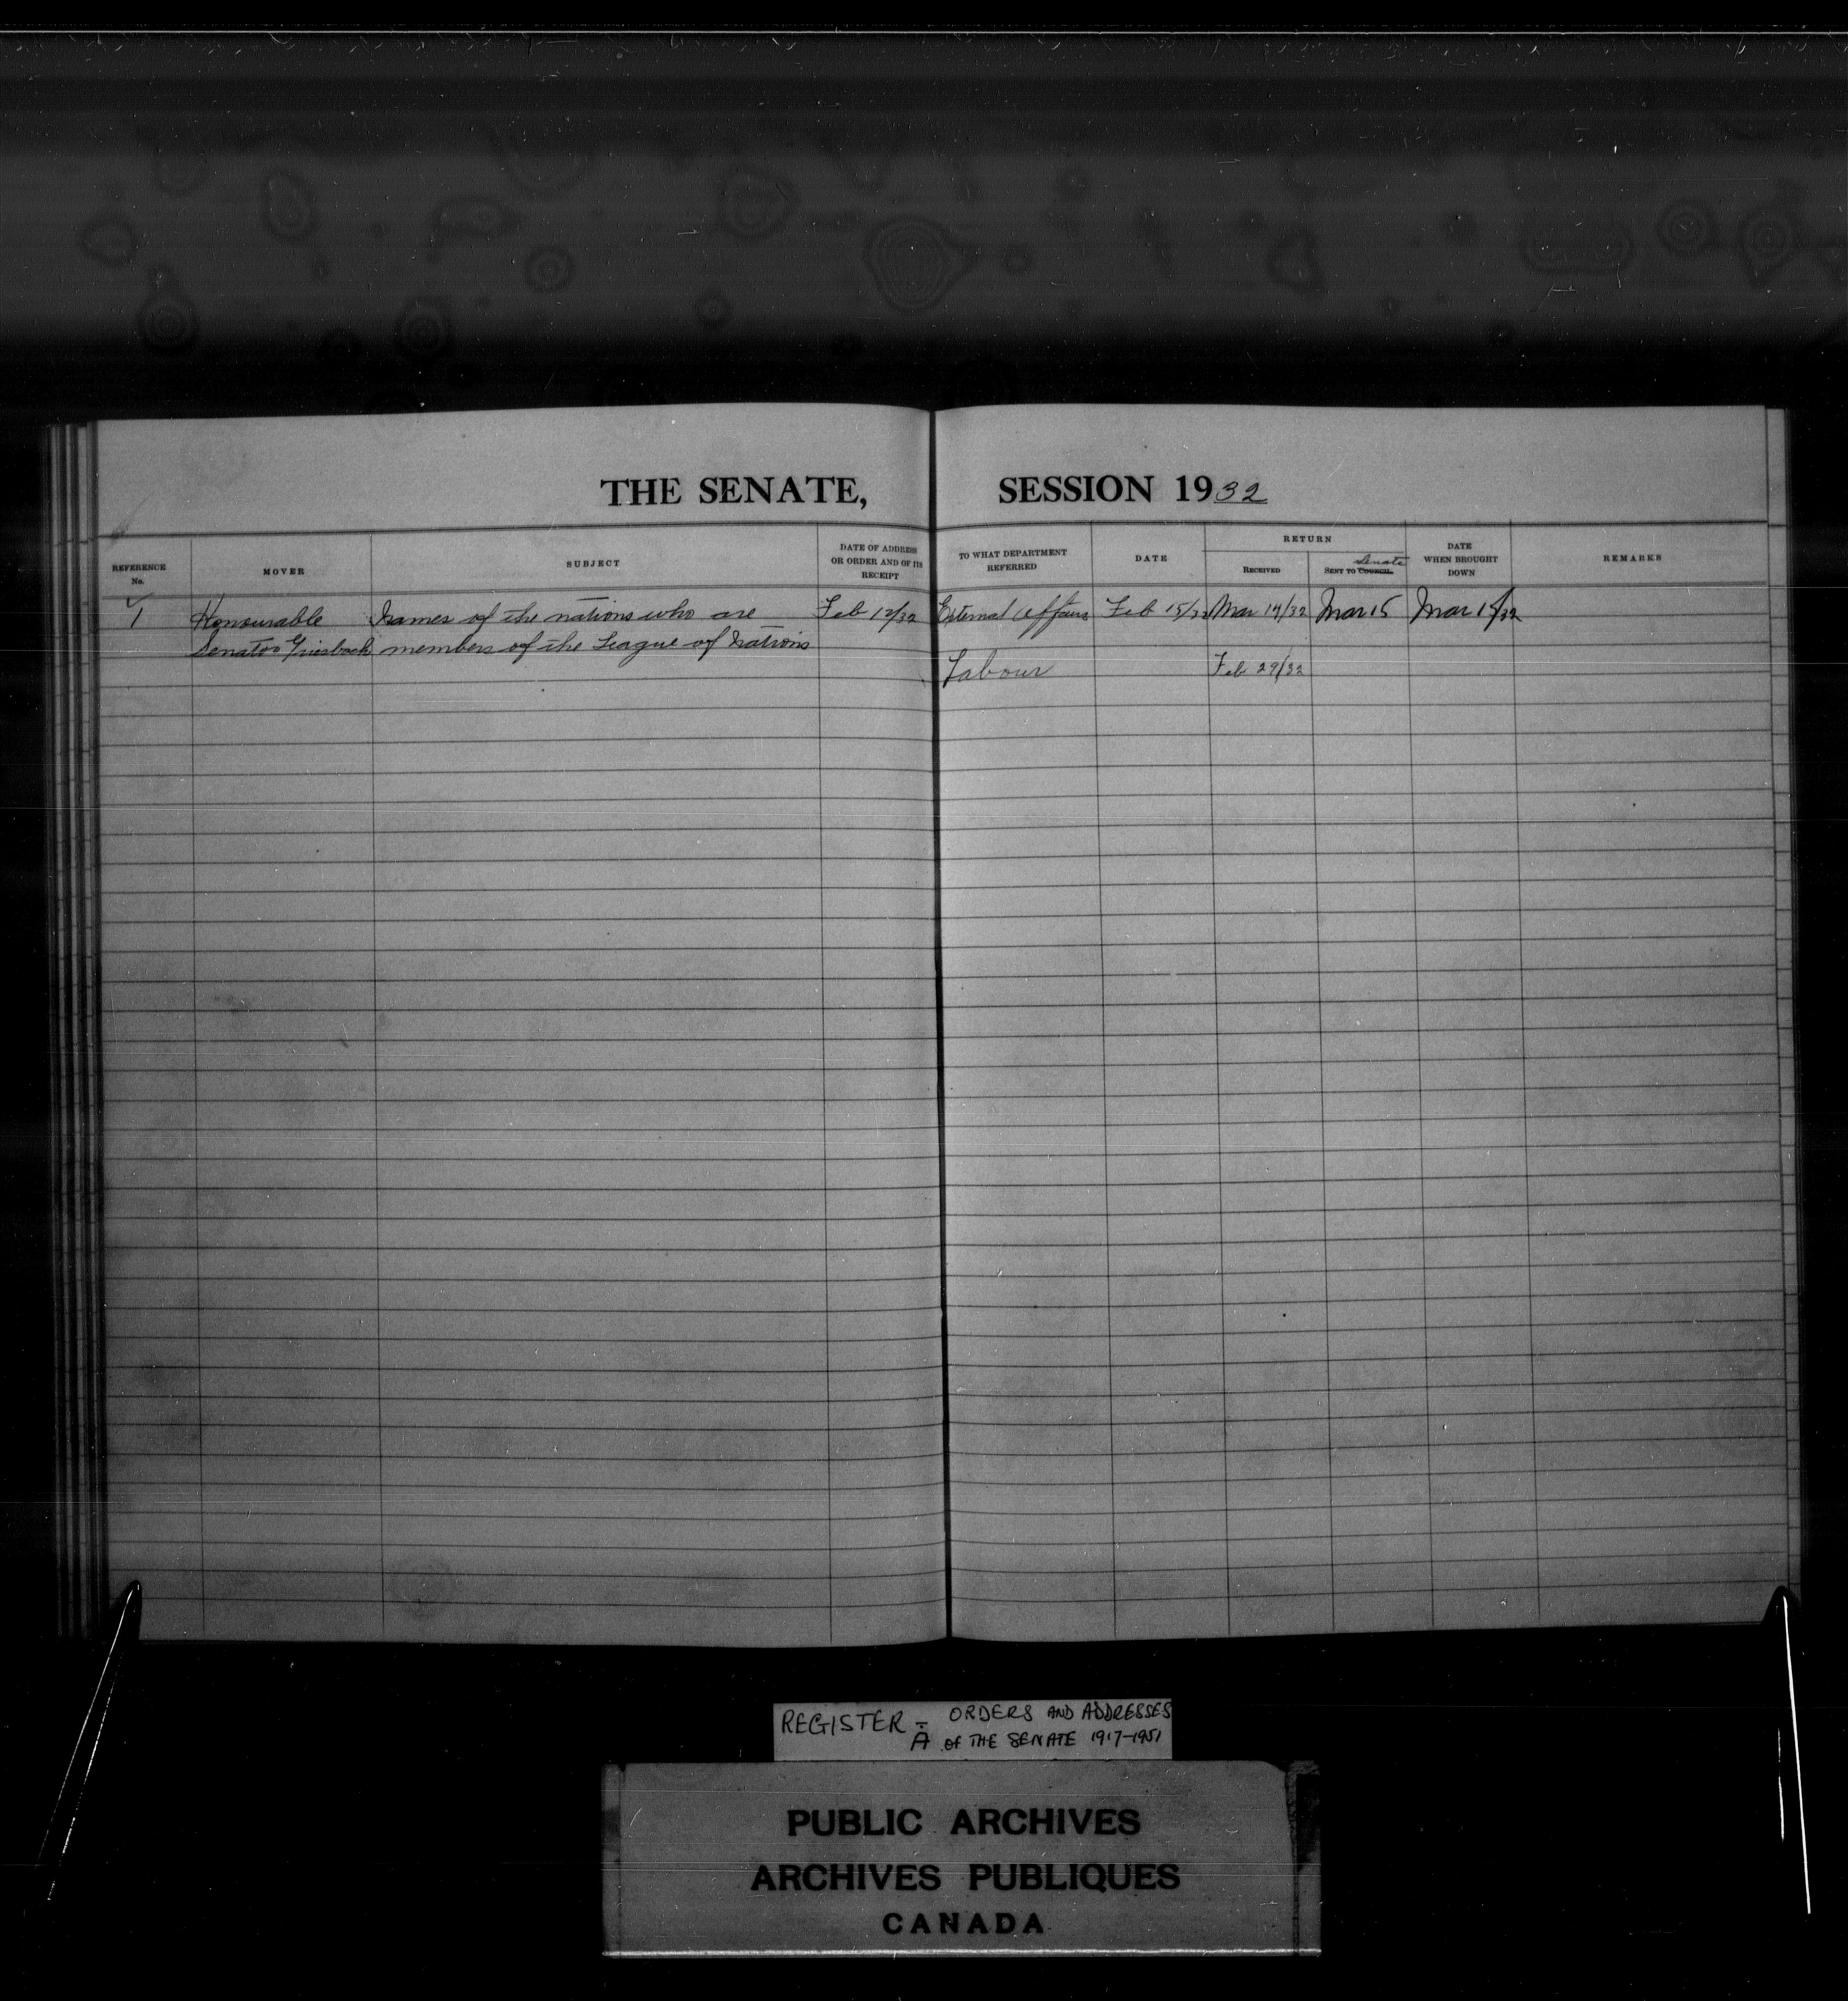 THE SENATE, SESSION 1932
REFERENCE No.
MOVER
SUBJECT
DATE OF ADDRESS OR ORDER AND OF ITS RECEIPT
TO WHAT DEPARTMENT REFERRED
DATE
RETURN
RECEIVED
SENT TO COUNCIL Senate
DATE WHEN BROUGHT DOWN
REMARKS
1 Honourable Names of the nations who are Feb 12/32 External Affairs Feb 15/32 Mar 14/32 Mar 15 Mar 15/32
Senator Griesbach members of the League of Nations
Labour Feb 29/32
REGISTER - ORDERS AND ADDRESSES
A OF THE SENATE 1917-1951
PUBLIC ARCHIVES
ARCHIVES PUBLIQUES
CANADA